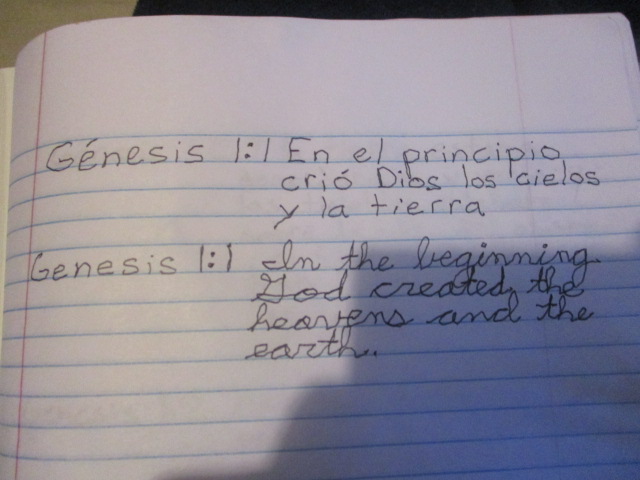 Génesis 1:1 En el principio
crió Dios los cielos
y la tierra
Genesis 1:1 In the beginning
God created the
heavens and the
earth.